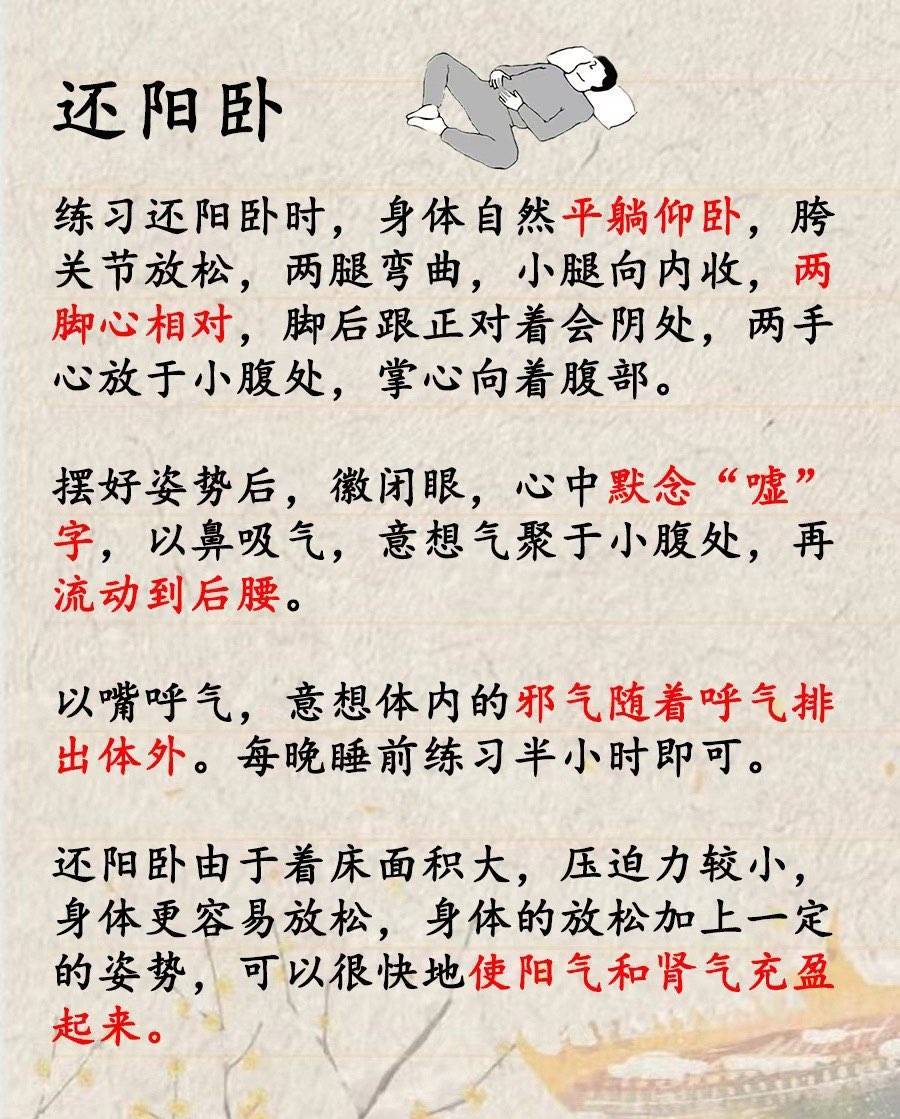 还阳卧
练习还阳卧时，身体自然平躺仰卧，胯
关节放松，两腿弯曲，小腿向内收，两
脚心相对，脚后跟正对着会阴处，两手
心放于小腹处，掌心向着腹部。
摆好姿势后，徽闭眼，心中默念“嘘”
字，以鼻吸气，意想气聚于小腹处，再
流动到后腰。
以嘴呼气，意想体内的邪气随着呼气排
出体外。每晚睡前练习半小时即可。
还阳卧由于着床面积大，压迫力较小，
身体更容易放松，身体的放松加上一定
的姿势，可以很快地使阳气和肾气充盈
起来。